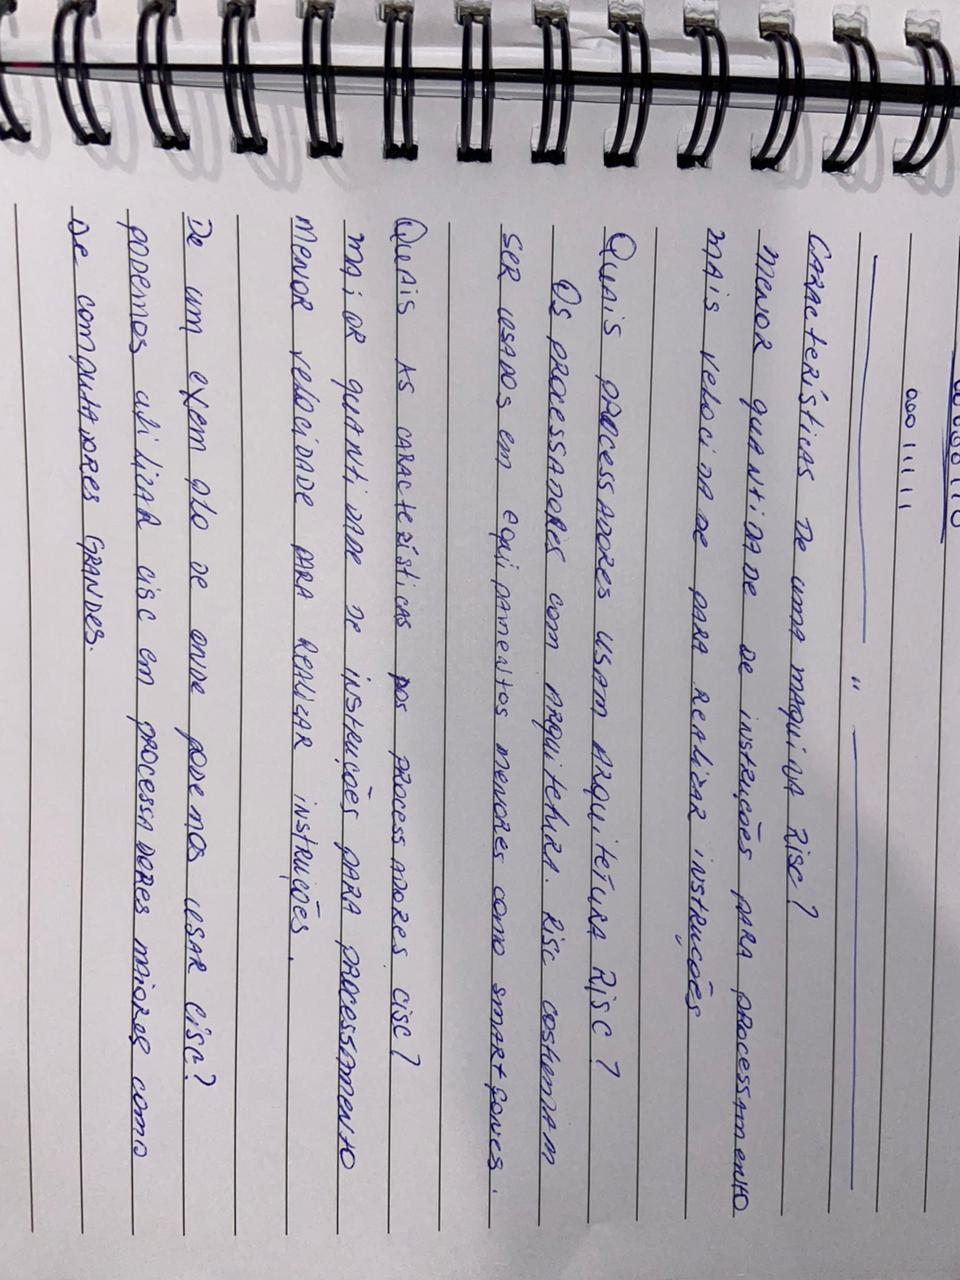 00011111
"
Características de uma maquina Risc?
menor quantidade de instruções para processamento
mais velocidade para realizar instruções
Quais processadores usam arquitetura Risc?
Os processadores com arquitetura. Risc costumam
ser usados em equipamentos menores como smartfones.
Quais as características dos processadores cisc?
maior quantidade de instruções para processamento
menor velocidade para realizar instruções.
De um exemplo de onde podemos usar cisc?
podemos utilizar cisc em processadores maiores como
de computadores grandes.